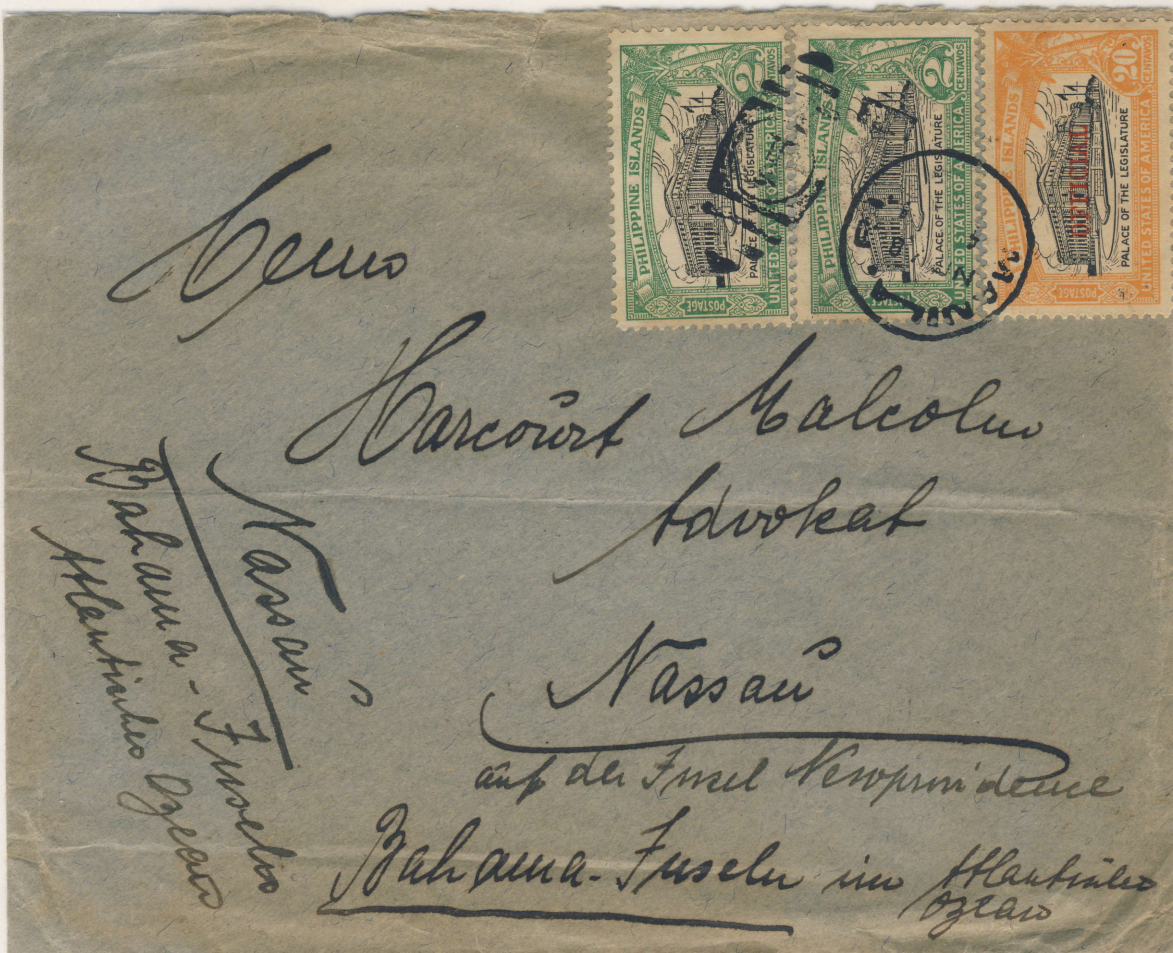 PHILIPPINE ISLANDS
2 CENTAVOS
PALACE OF THE LEGISLATURE
UNITED STATES OF AMERICA
POSTAGE
PHILIPPINE ISLANDS
2 CENTAVOS
PALACE OF THE LEGISLATURE
UNITED STATES OF AMERICA
POSTAGE
PHILIPPINE ISLANDS
20 CENTAVOS
OFFICIAL
PALACE OF THE LEGISLATURE
UNITED STATES OF AMERICA
POSTAGE
MANILA, P.I.
Herrn
Harcourt Malcolm
Advokat
Nassau
auf der Insel Newprovidence
Bahama-Inseln im Atlantischen
Ozean
Nassau
Bahama-Inseln
Atlantischen Ozean